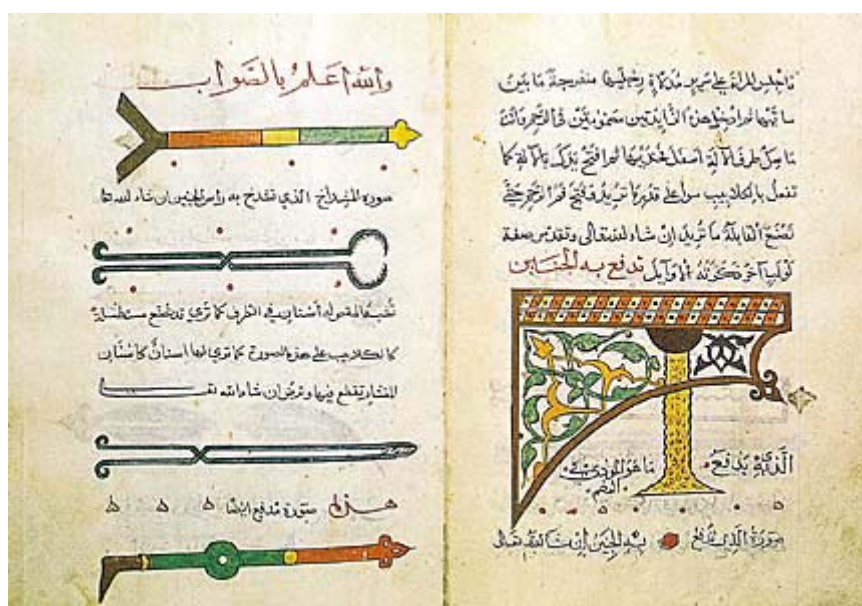 فاجلس المراة على سرير مدلاة رجليها منفرجة ما بين
ساقيها ثم ادخل هذه الزايدتين مضمومتين في الرحم وانت
ماسك طرف الالة اسفل فخذيها ثم افتح يدك بالالة كما
تفعل بالكلاليب سوا على قدر ما تريد فتح فم الرحم حتى
تصنع القابلة ما تريد ان شاء الله تعالى وتقدس صفة
لولب آخر ذكرته الاوايل تدفع به الجنين
الذي يدفع ما هو في
الفم
صورة الذي تدفع به الجنين ان شاء الله تعالى
والله اعلم بالصواب
صورة المشداخ الذي تشدخ به راس الجنين ان شاء الله تعا
اسنان في الطرف كما ترى وقد تصنع مستطيلة
كالكلاليب على هذه الصورة كما ترى لها اسنان كاسنان
المنشار يقطع بها وترض ان شاء الله
هذه صورة مدفع ايضا